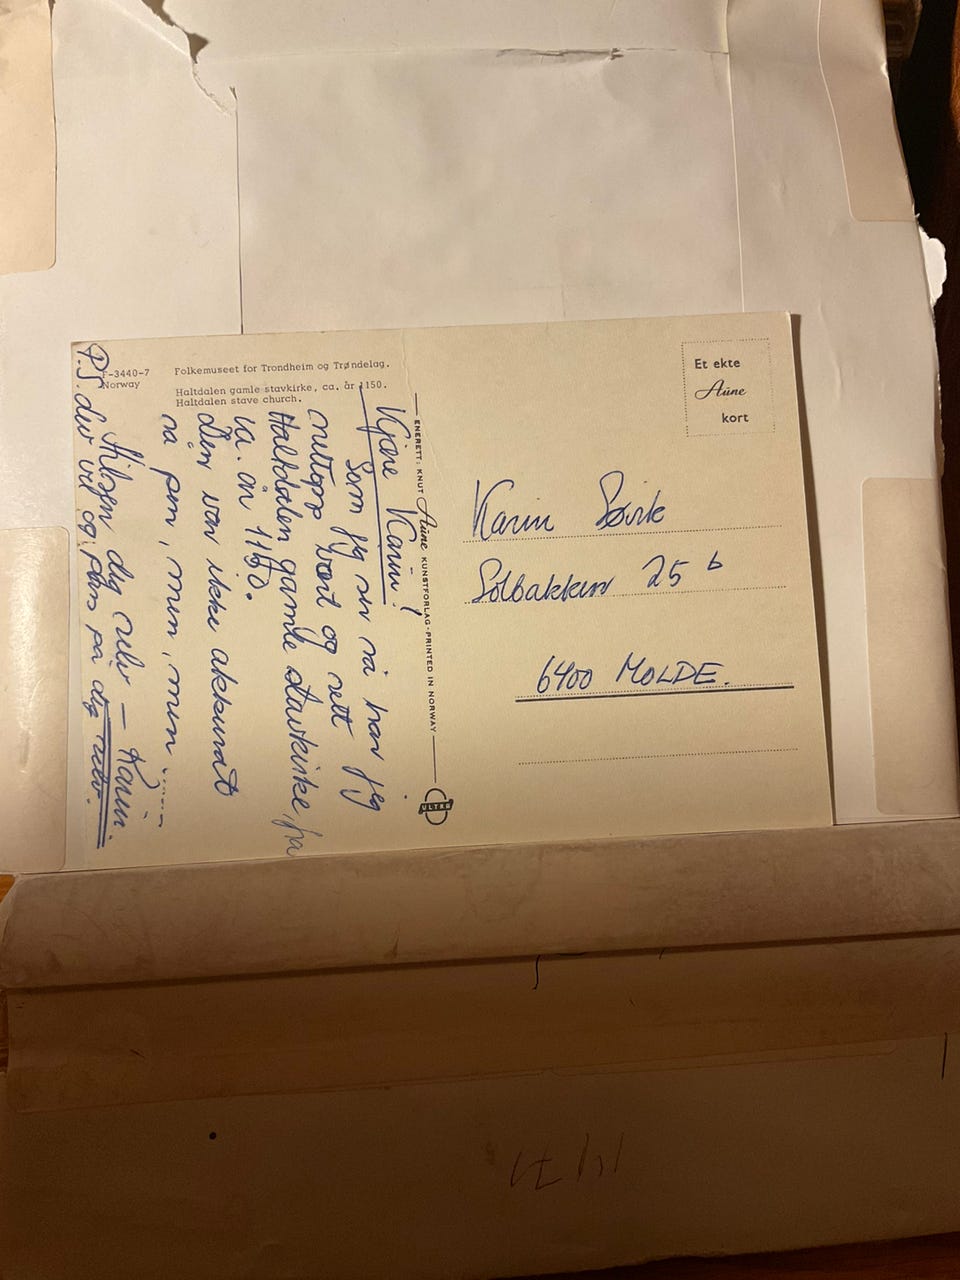 F-3440-7
Norway
Folkemuseet for Trondheim og Trøndelag.
Haltdalen gamle stavkirke, ca. år 1150.
Haltdalen stave church.
Kjære Karin!
Som jeg ser nå har jeg
nettopp vært og sett
Haltdalen gamle stavkirke, fra
ca. år 1150.
Den var ikke akkurat
så pen, men, men.....
Hilsen deg selv – Karin
P.S. du vil og pass på deg selv.
ENERETT: KNUT Aüne KUNSTFORLAG - PRINTED IN NORWAY
ULTRA
Et ekte
Aüne
kort
Karin Søvik
Solbakken 25 b
6400 MOLDE.